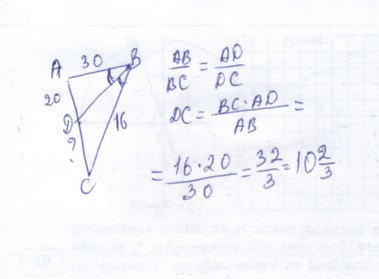 A 30 B
20
D
?
16
C
AB/BC = AD/DC
DC = BC·AD/AB =
= 16·20/30 = 32/3 = 10 2/3